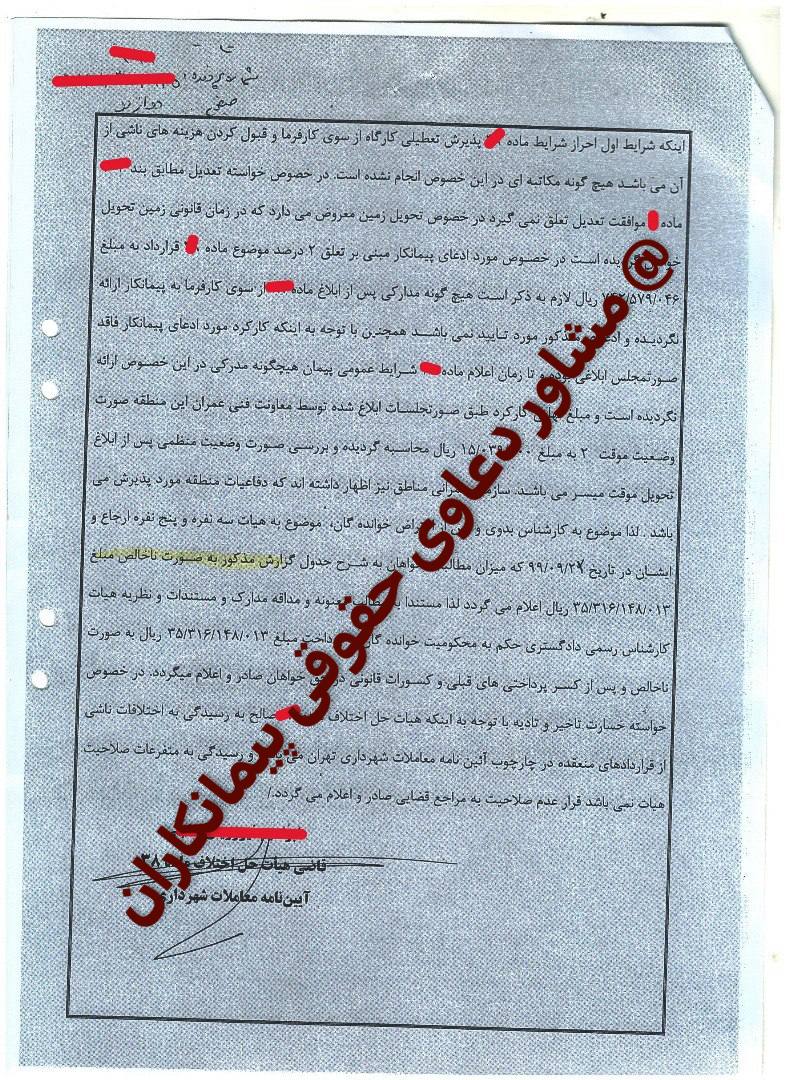 صفحه دوازده
اینکه شرایط اول احراز شرایط ماده پذیرش تعطیلی کارگاه از سوی کارفرما و قبول کردن هزینه های ناشی از
آن می باشد هیچ گونه مکاتبه ای در این خصوص انجام نشده است. در خصوص خواسته تعدیل مطابق بند
ماده موافقت تعدیل تعلق نمی گیرد در خصوص تحویل زمین معروض می دارد که در زمان قانونی زمین تحویل
گردیده است در خصوص مورد ادعای پیمانکار مبنی بر تعلق ۲ درصد موضوع ماده قرارداد به مبلغ
ریال لازم به ذکر است هیچ گونه مدارکی پس از ابلاغ ماده از سوی کارفرما به پیمانکار ارائه
نگردیده و مذکور مورد تایید نمی باشد همچنین با توجه به اینکه کارکرد مورد ادعای پیمانکار فاقد
صورتمجلس ابلاغی بوده و تا زمان اعلام ماده شرایط عمومی پیمان هیچگونه مدرکی در این خصوص ارائه
نگردیده است و مبلغ کارکرد طبق صورتجلسات ابلاغ شده توسط معاونت فنی عمران این منطقه صورت
وضعیت موقت ۲ به مبلغ ریال محاسبه گردیده و بررسی صورت وضعیت منظمی پس از ابلاغ
تحویل موقت میسر می باشد. مناطق نیز اظهار داشته اند که دفاعیات منطقه مورد پذیرش می
باشد . لذا موضوع به کارشناس بدوی و خوانده گان، موضوع به هیات سه نفره و پنج نفره ارجاع و
ایشان در تاریخ که میزان مطالبات خواهان به شرح جدول گزارش مذکور به صورت ناخالص مبلغ
۳۵/۳۱۶/۱۴۸/۰۱۳ ریال اعلام می گردد لذا مستندا به معنونه و مداقه مدارک و مستندات و نظریه هیات
کارشناس رسمی دادگستری حکم به محکومیت خوانده گان پرداخت مبلغ ۳۵/۳۱۶/۱۴۸/۰۱۳ ریال به صورت
ناخالص و پس از کسر پرداختی های قبلی و کسورات قانونی در حق خواهان صادر و اعلام میگردد. در خصوص
خواسته خسارت تاخیر و تادیه با توجه به اینکه هیات حل اختلاف صالح به رسیدگی به اختلافات ناشی
از قراردادهای منعقده در چارچوب آئین نامه معاملات شهرداری تهران می باشد و رسیدگی به متفرعات صلاحیت
هیات نمی باشد قرار عدم صلاحیت به مراجع قضایی صادر و اعلام می گردد./
قاضی هیات حل اختلاف ماده ۳۸
آیین‌نامه معاملات شهرداری
@ مشاور دعاوی حقوقی پیمانکاران